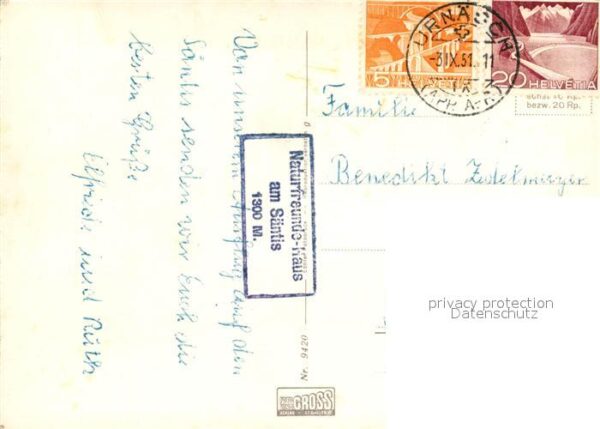 Von unserem Ausflug auf den
Säntis senden wir Euch die
besten Grüße
Elfriede und Ruth
Naturfreunde-Haus
am Säntis
1300 M.
URNÄSCH
-3.IX.51.11
(APP. A.RH.)
5 HELVETIA
20 HELVETIA
bezw. 20 Rp.
Familie
Benedikt Zedelmayer
privacy protection
Datenschutz
Nr. 9420
GROSS